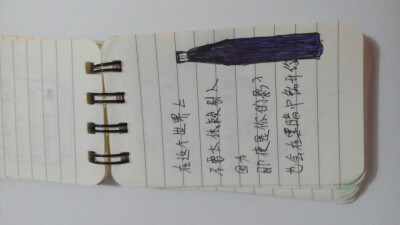 在这个世界上
不要太依赖别人
因为
即使是你的影子
也会在黑暗中离开你